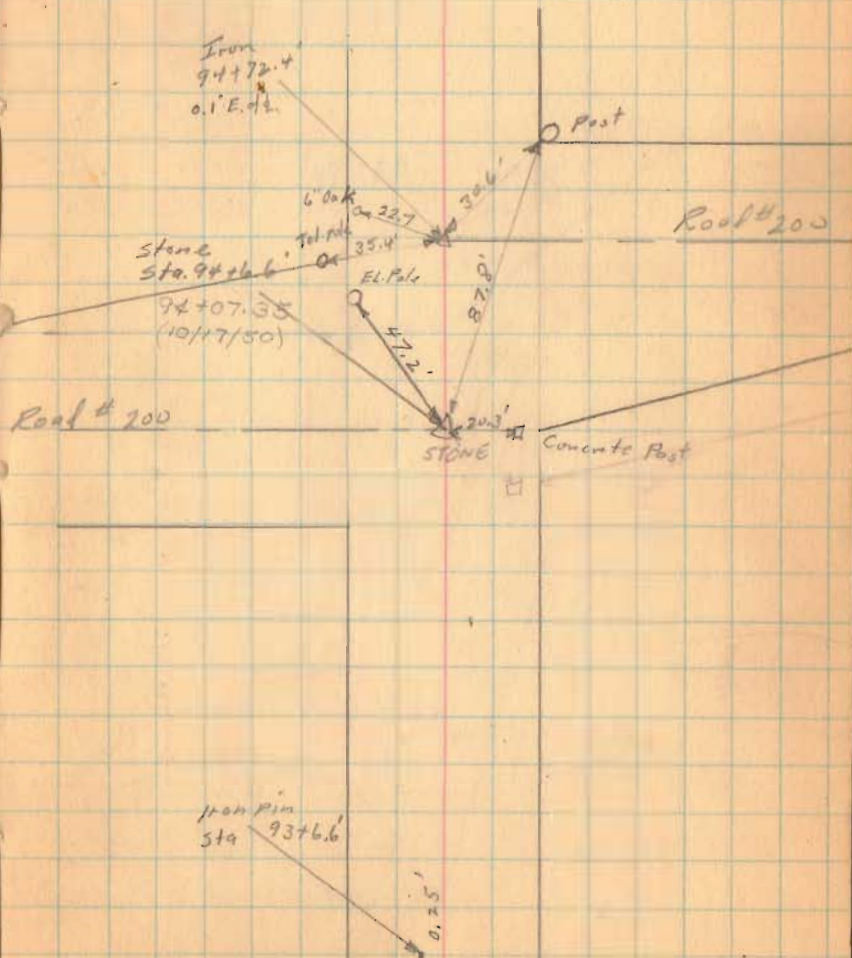 Iron
94+72.4'
0.1' E. of ℄
Post
30.6'
6" Oak
22.7
Road #200
Tel. pole
35.4'
Stone
Sta. 94+6.6'
EL. Pole
94+07.35
(10/17/50)
87.8'
47.2'
Road # 200
20.3'
STONE
Concrete Post
Iron pin
Sta 93+6.6'
0.25'